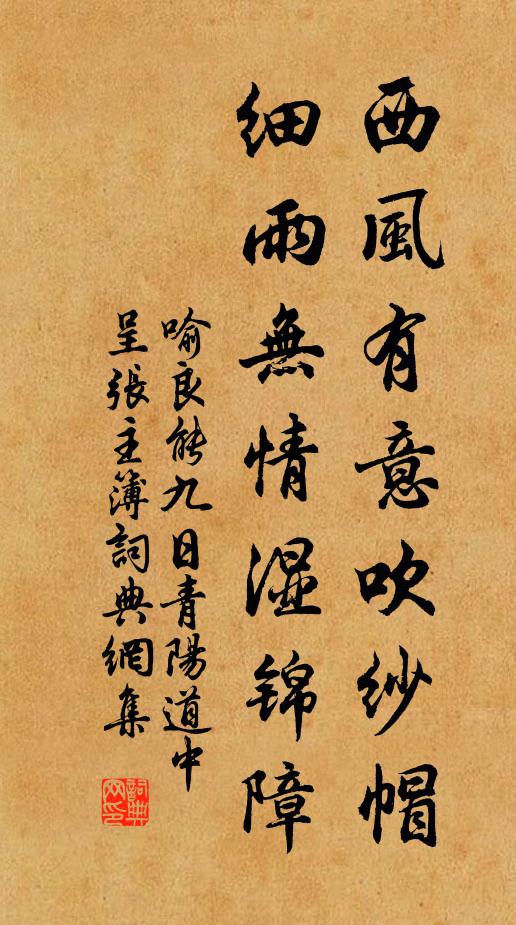 西風有意吹紗帽
細雨無情湿锦障
喻良能九日青陽道中
呈張主簿詞典網集
詞典
网印